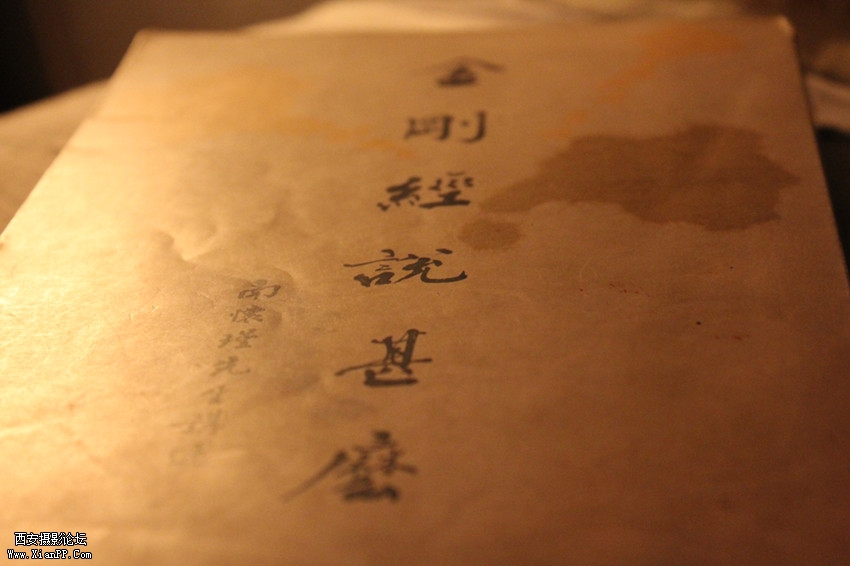 金剛經說甚麼
南懷瑾先生講述
西安摄影论坛
Www.XianPP.Com